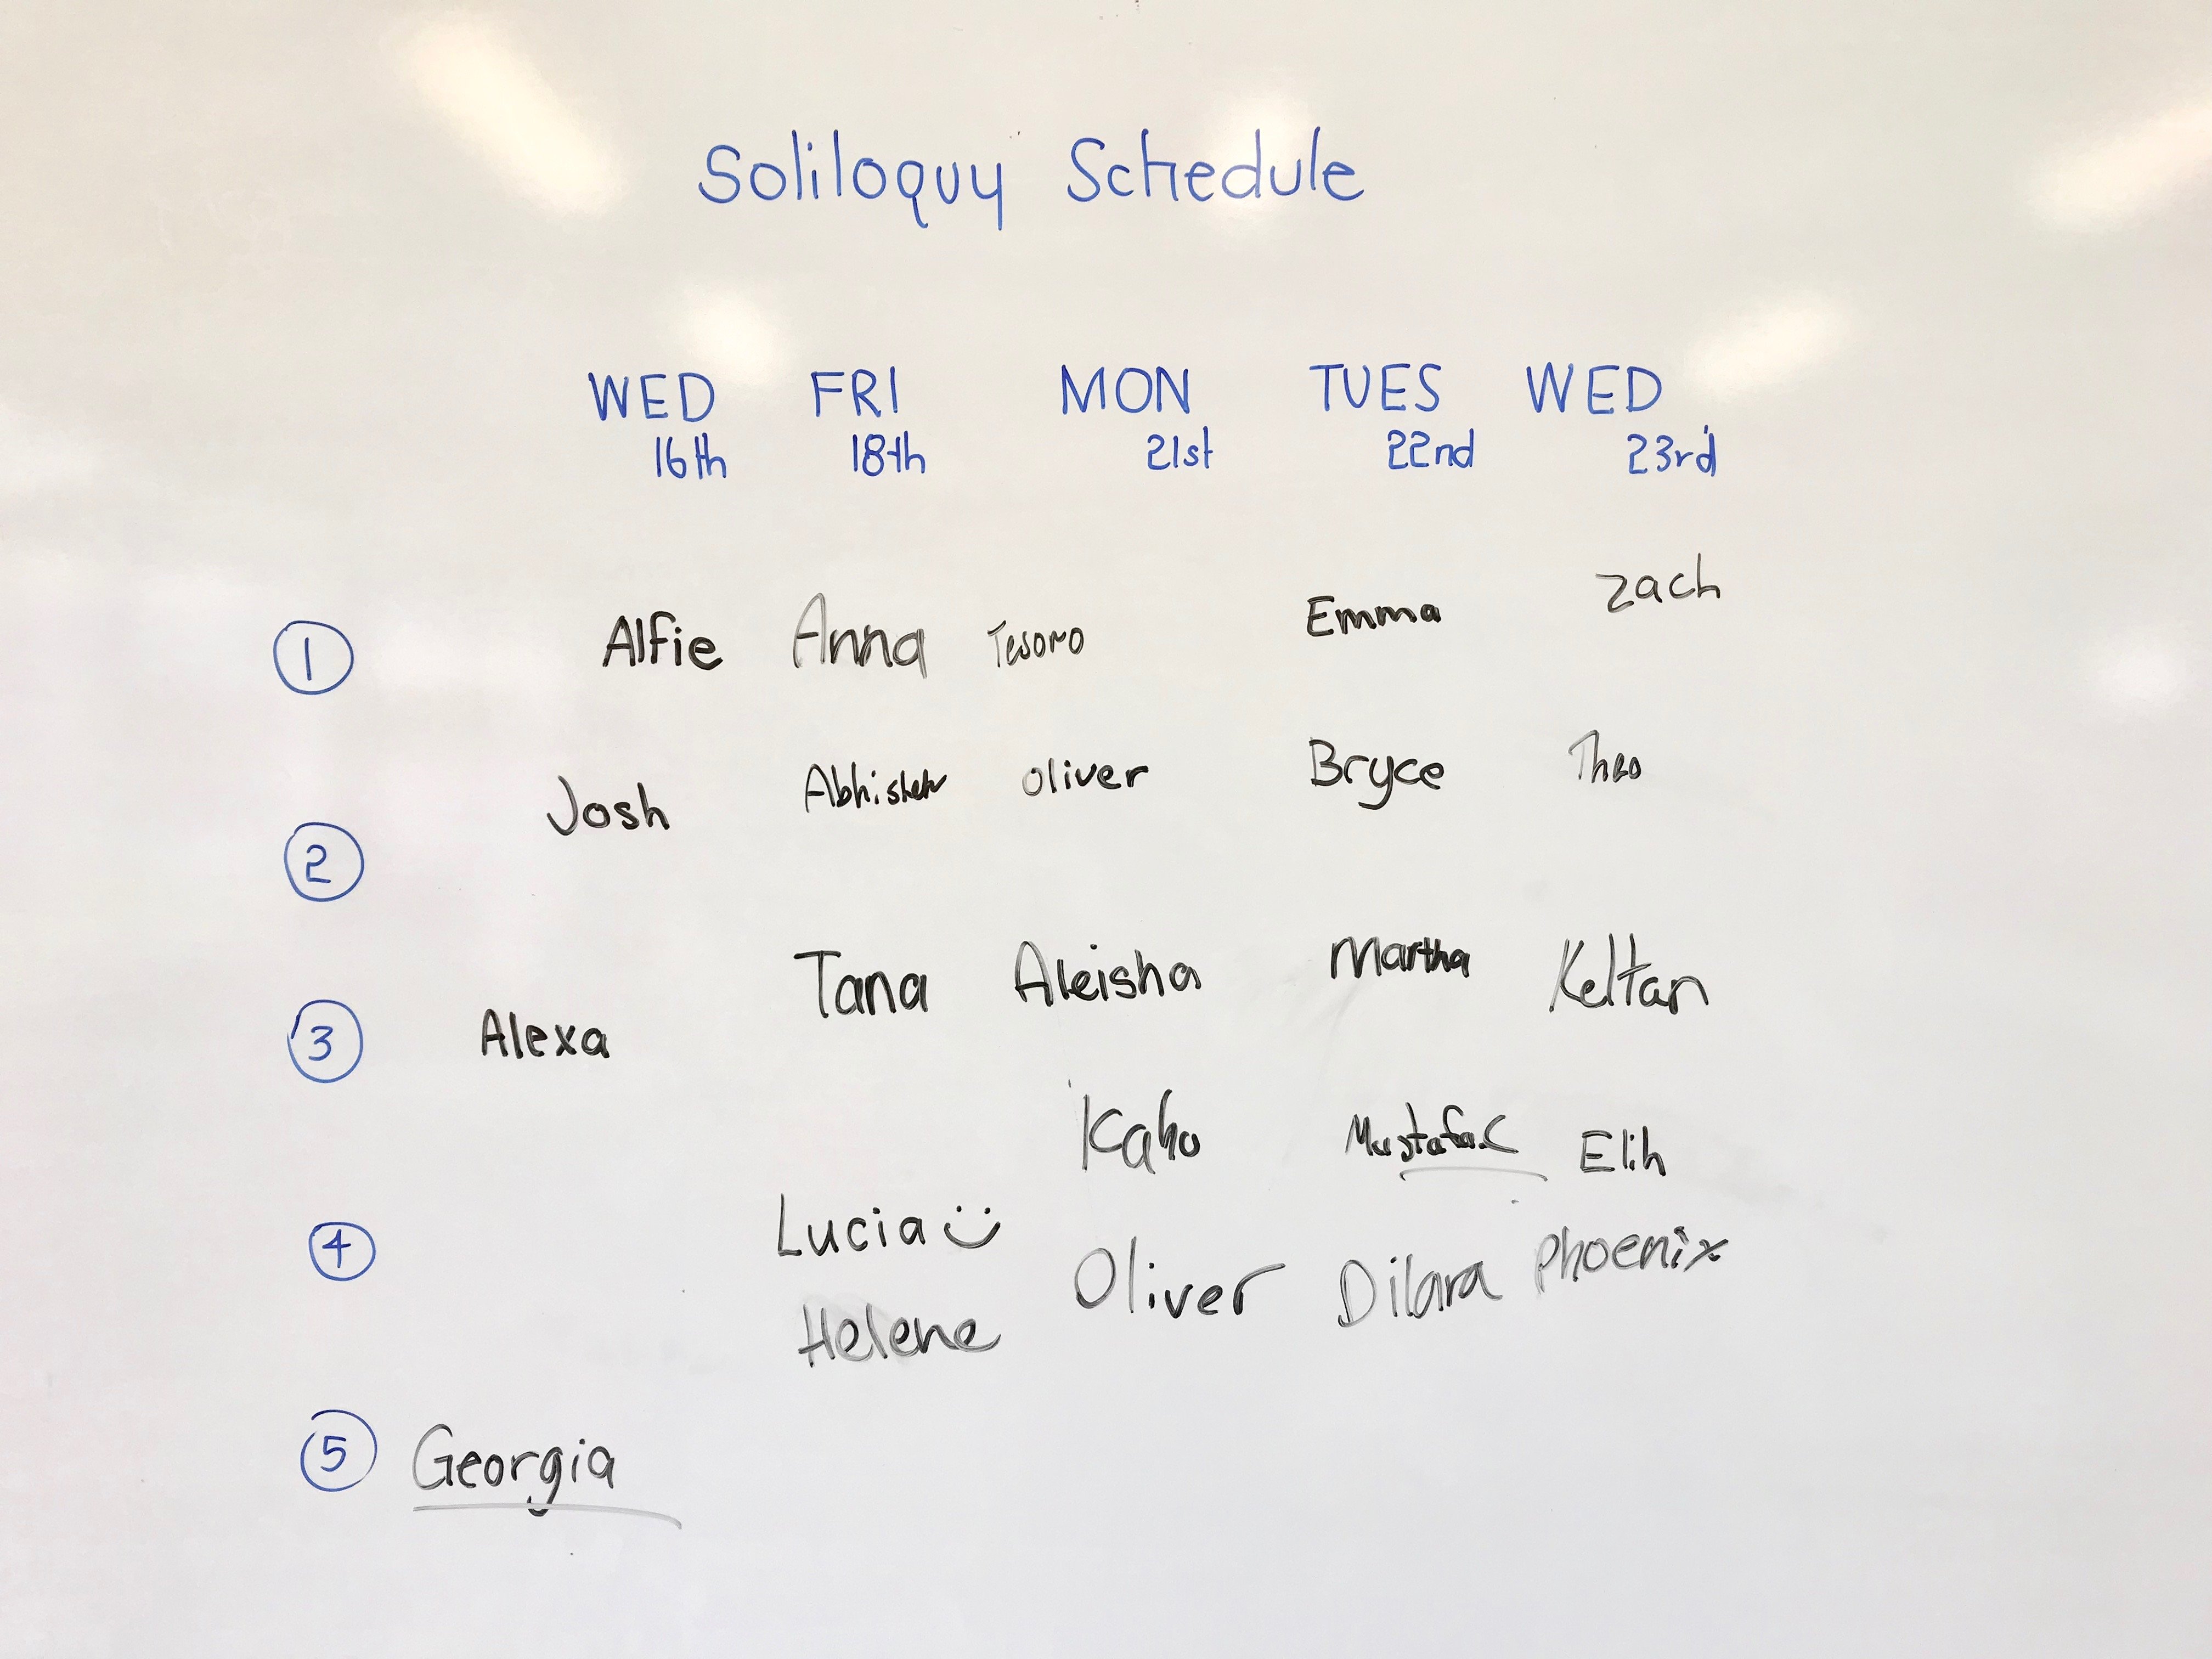 Soliloquy Schedule
WED FRI MON TUES WED
16th 18th 21st 22nd 23rd
1 Alfie Anna Tesoro Emma Zach
Josh Abhishek Oliver Bryce Theo
2
Tana Aleisha Martha Keltan
3 Alexa
Kaho Mustafa.C Elih
4 Lucia
Oliver Dilara Phoenix
Helene
5 Georgia